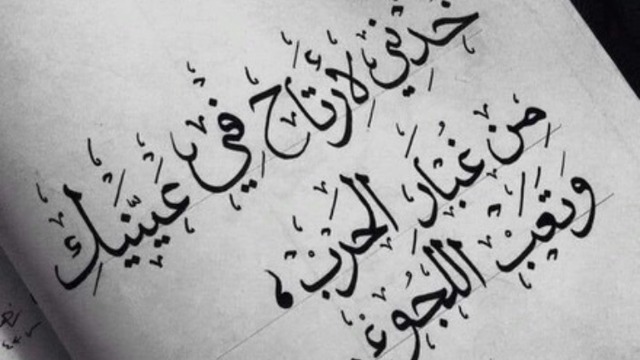 خذني لأرتاح في عينيك
من غبار الحرب،
وتعب اللجوء